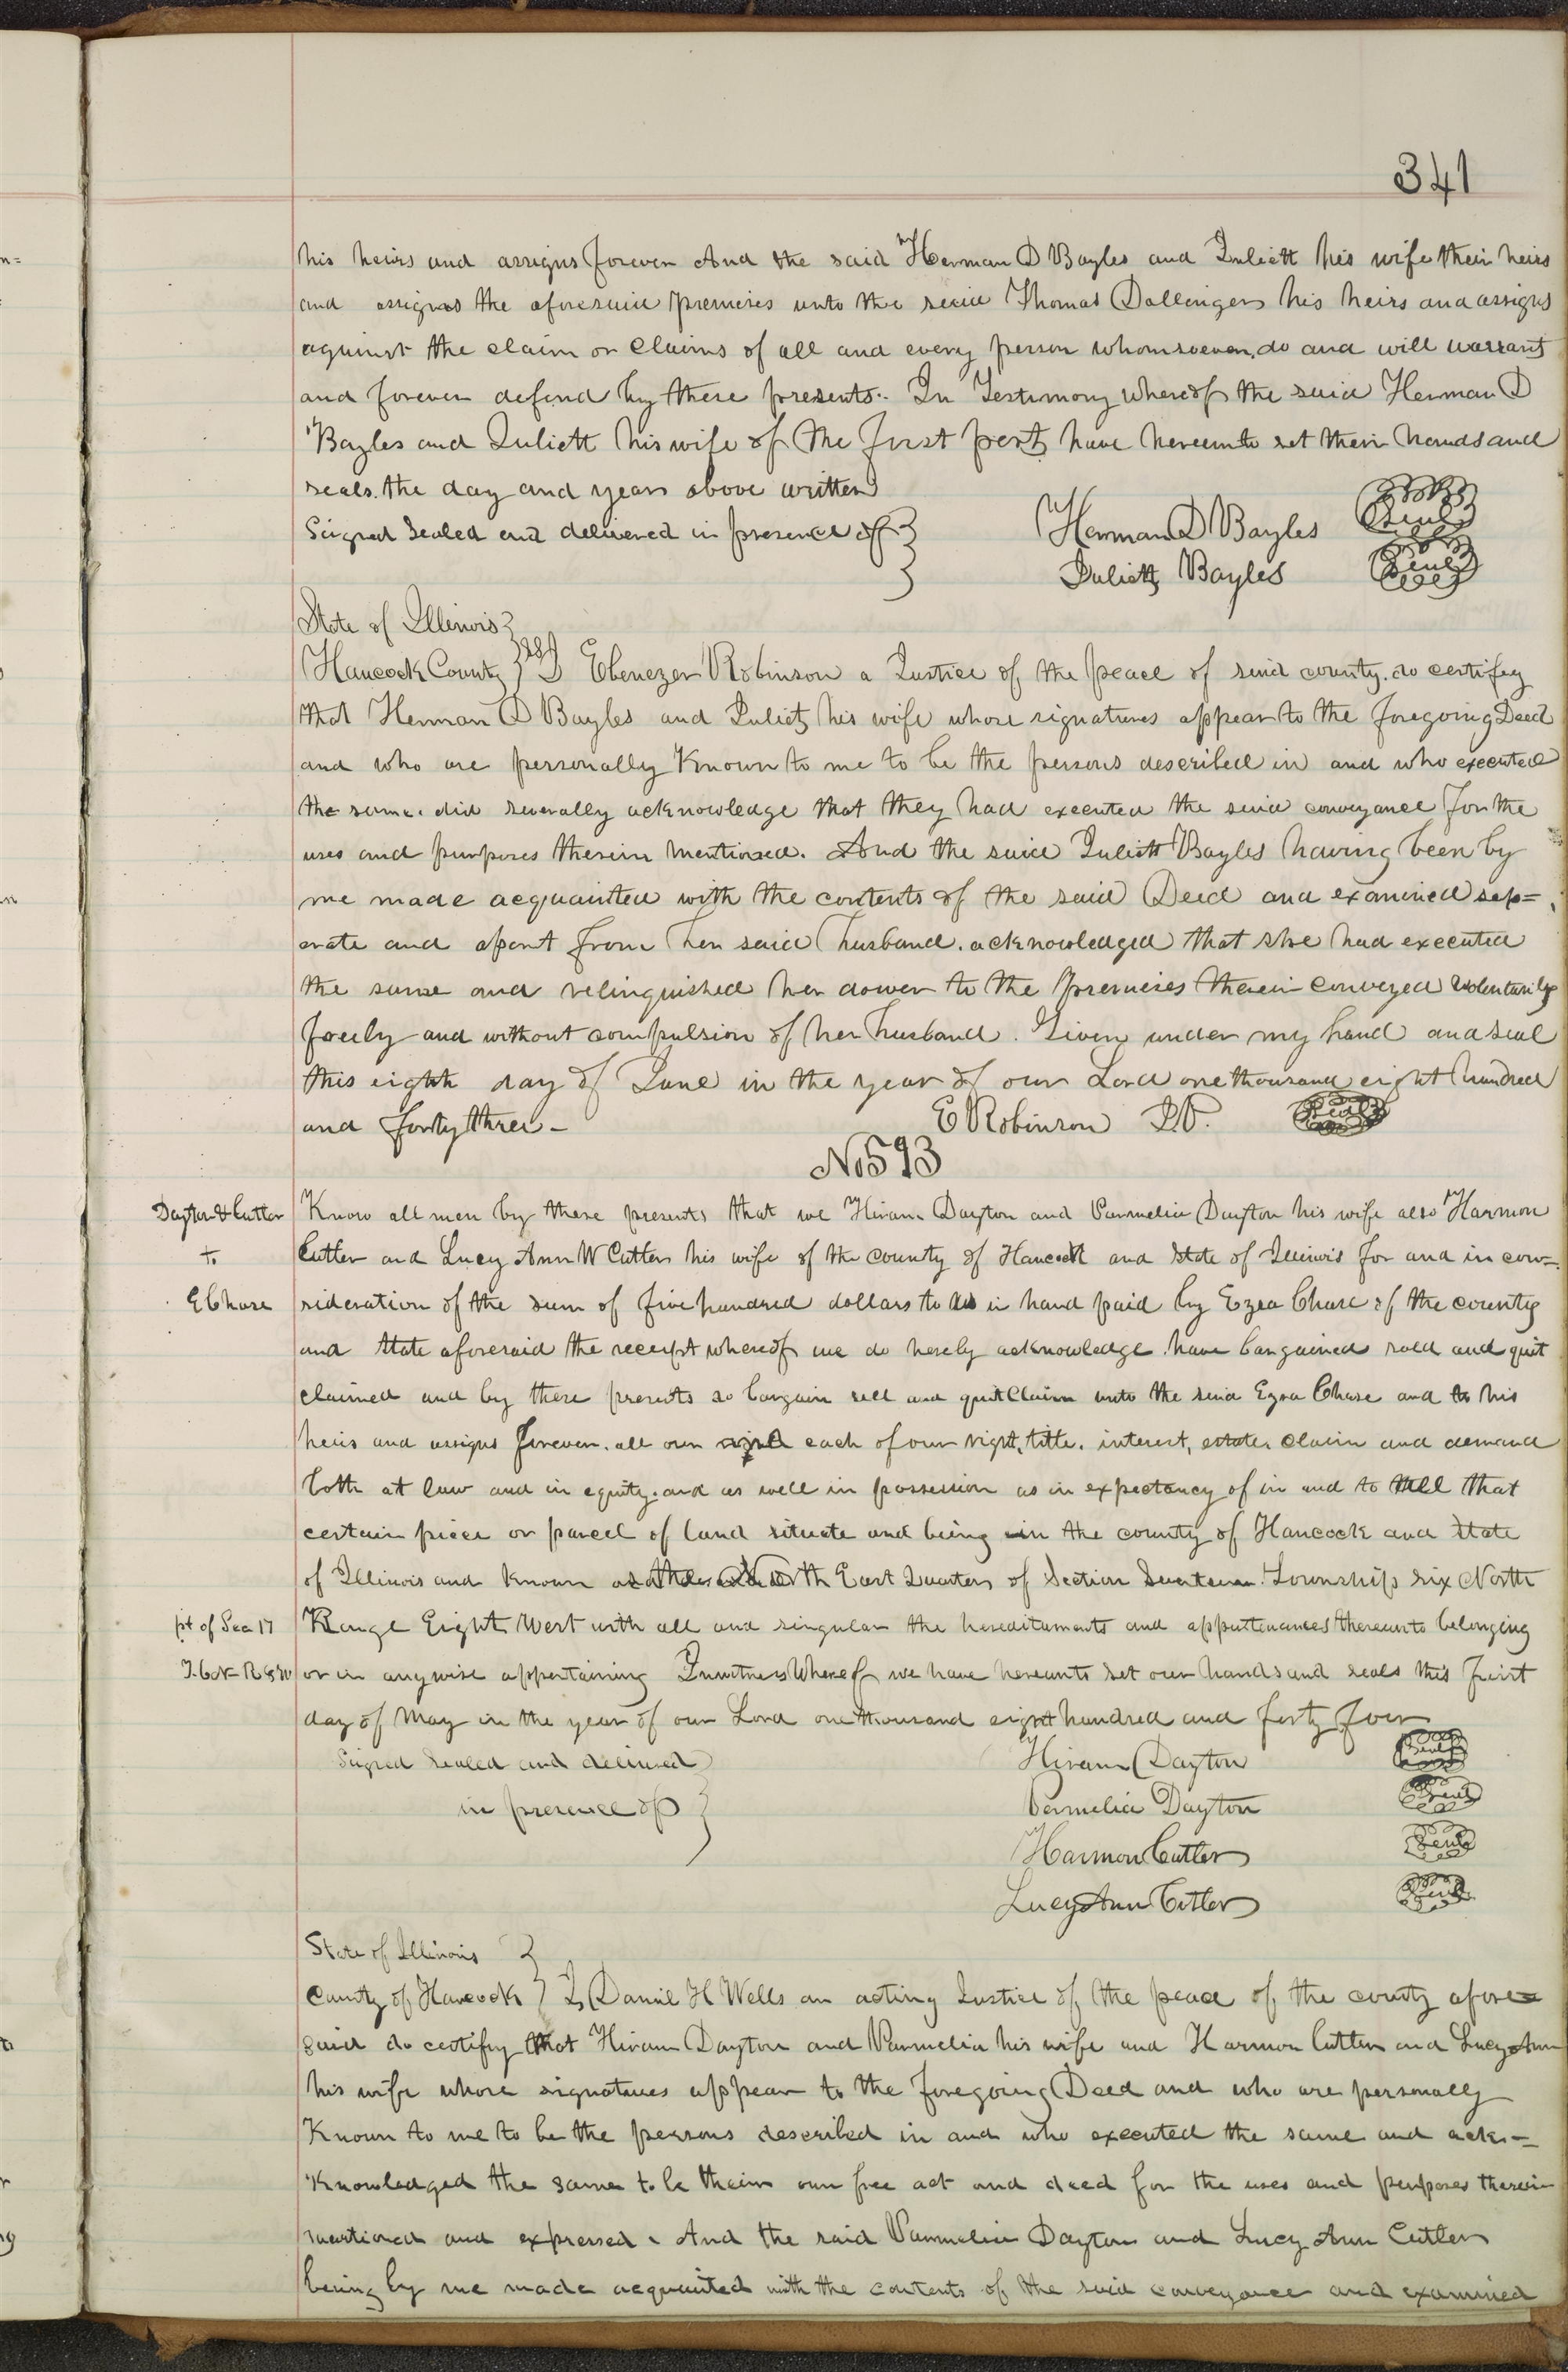 341
his heirs and assigns forever And the said Herman D Bayles and Juliett his wife their heirs
and assigns the aforesaid premises unto the said Thomas Dallinger his heirs and assigns
against the claim or Claims of all and every person whomsoever, do and will warrant
and forever defend by these presents. In Testimony whereof the said Herman D
Bayles and Juliett his wife of the first part have hereunto set their hands and
seals. the day and year above written
Signed Sealed and delivered in presence of } Herman D Bayles Seal
Juliett Bayles Seal
State of Illinois }
Hancock County } SS I Ebenezer Robinson a Justice of the peace of said county. do certify
that Herman D Bayles and Juliett his wife whose signatures appear to the foregoing Deed
and who are personally Known to me to be the persons described in and who executed
the same. did severally acknowledge that they had executed the said conveyance for the
uses and purposes therein mentioned. And the said Juliett Bayles having been by
me made acquainted with the contents of the said Deed and examined sep=
erate and apart from her said husband. acknowledged that she had executed
the same and relinquished her dower to the premises therein conveyed voluntarily
freely and without compulsion of her husband. Given under my hand and seal
this eighth day of June in the year of our Lord one thousand eight hundred
and forty three - E Robinson J.P. Seal
No 593
Dayton & Cutler Know all men by these presents that we Hiram Dayton and Parmelia Dayton his wife also Harmon
to Cutler and Lucy Ann W Cutler his wife of the county of Hancock and State of Illinois for and in con=
E Chase sideration of the sum of five hundred dollars to us in hand paid by Ezra Chase of the county
and State aforesaid the receipt whereof we do hereby acknowledge. have bargained sold and quit
claimed and by these presents do bargain sell and quit Claim unto the said Ezra Chase and to his
heirs and assigns forever. all our and each of our right, title. interest, estate, claim and demand
both at law and in equity. and as well in possession as in expectancy of in and to all that
certain piece or parcel of land situate and being in the county of Hancock and State
of Illinois and known as the North East Quarter of Section Seventeen Township six North
pt of Sec 17 Range Eight West with all and singular the hereditaments and appurtenances thereunto belonging
T. 6 N R 8 W or in anywise appertaining In witness Whereof we have hereunto set our hands and seals this first
day of May in the year of our Lord one thousand eight hundred and forty four
Signed Sealed and delivered } Hiram Dayton Seal
in presence of } Permelia Dayton Seal
Harmon Cutler Seal
Lucy Ann Cutler Seal
State of Illinois }
County of Hancock } I, Daniel H Wells an acting Justice of the peace of the county afore=
said do certify that Hiram Dayton and Parmelia his wife and Harmon Cutler and Lucy Ann
his wife whose signatures appear to the foregoing Deed and who are personally
Known to me to be the persons described in and who executed the same and ack=
Knowledged the same to be their own free act and deed for the uses and purposes therein
mentioned and expressed. And the said Parmelia Dayton and Lucy Ann Cutler
being by me made acquainted with the contents of the said conveyance and examined